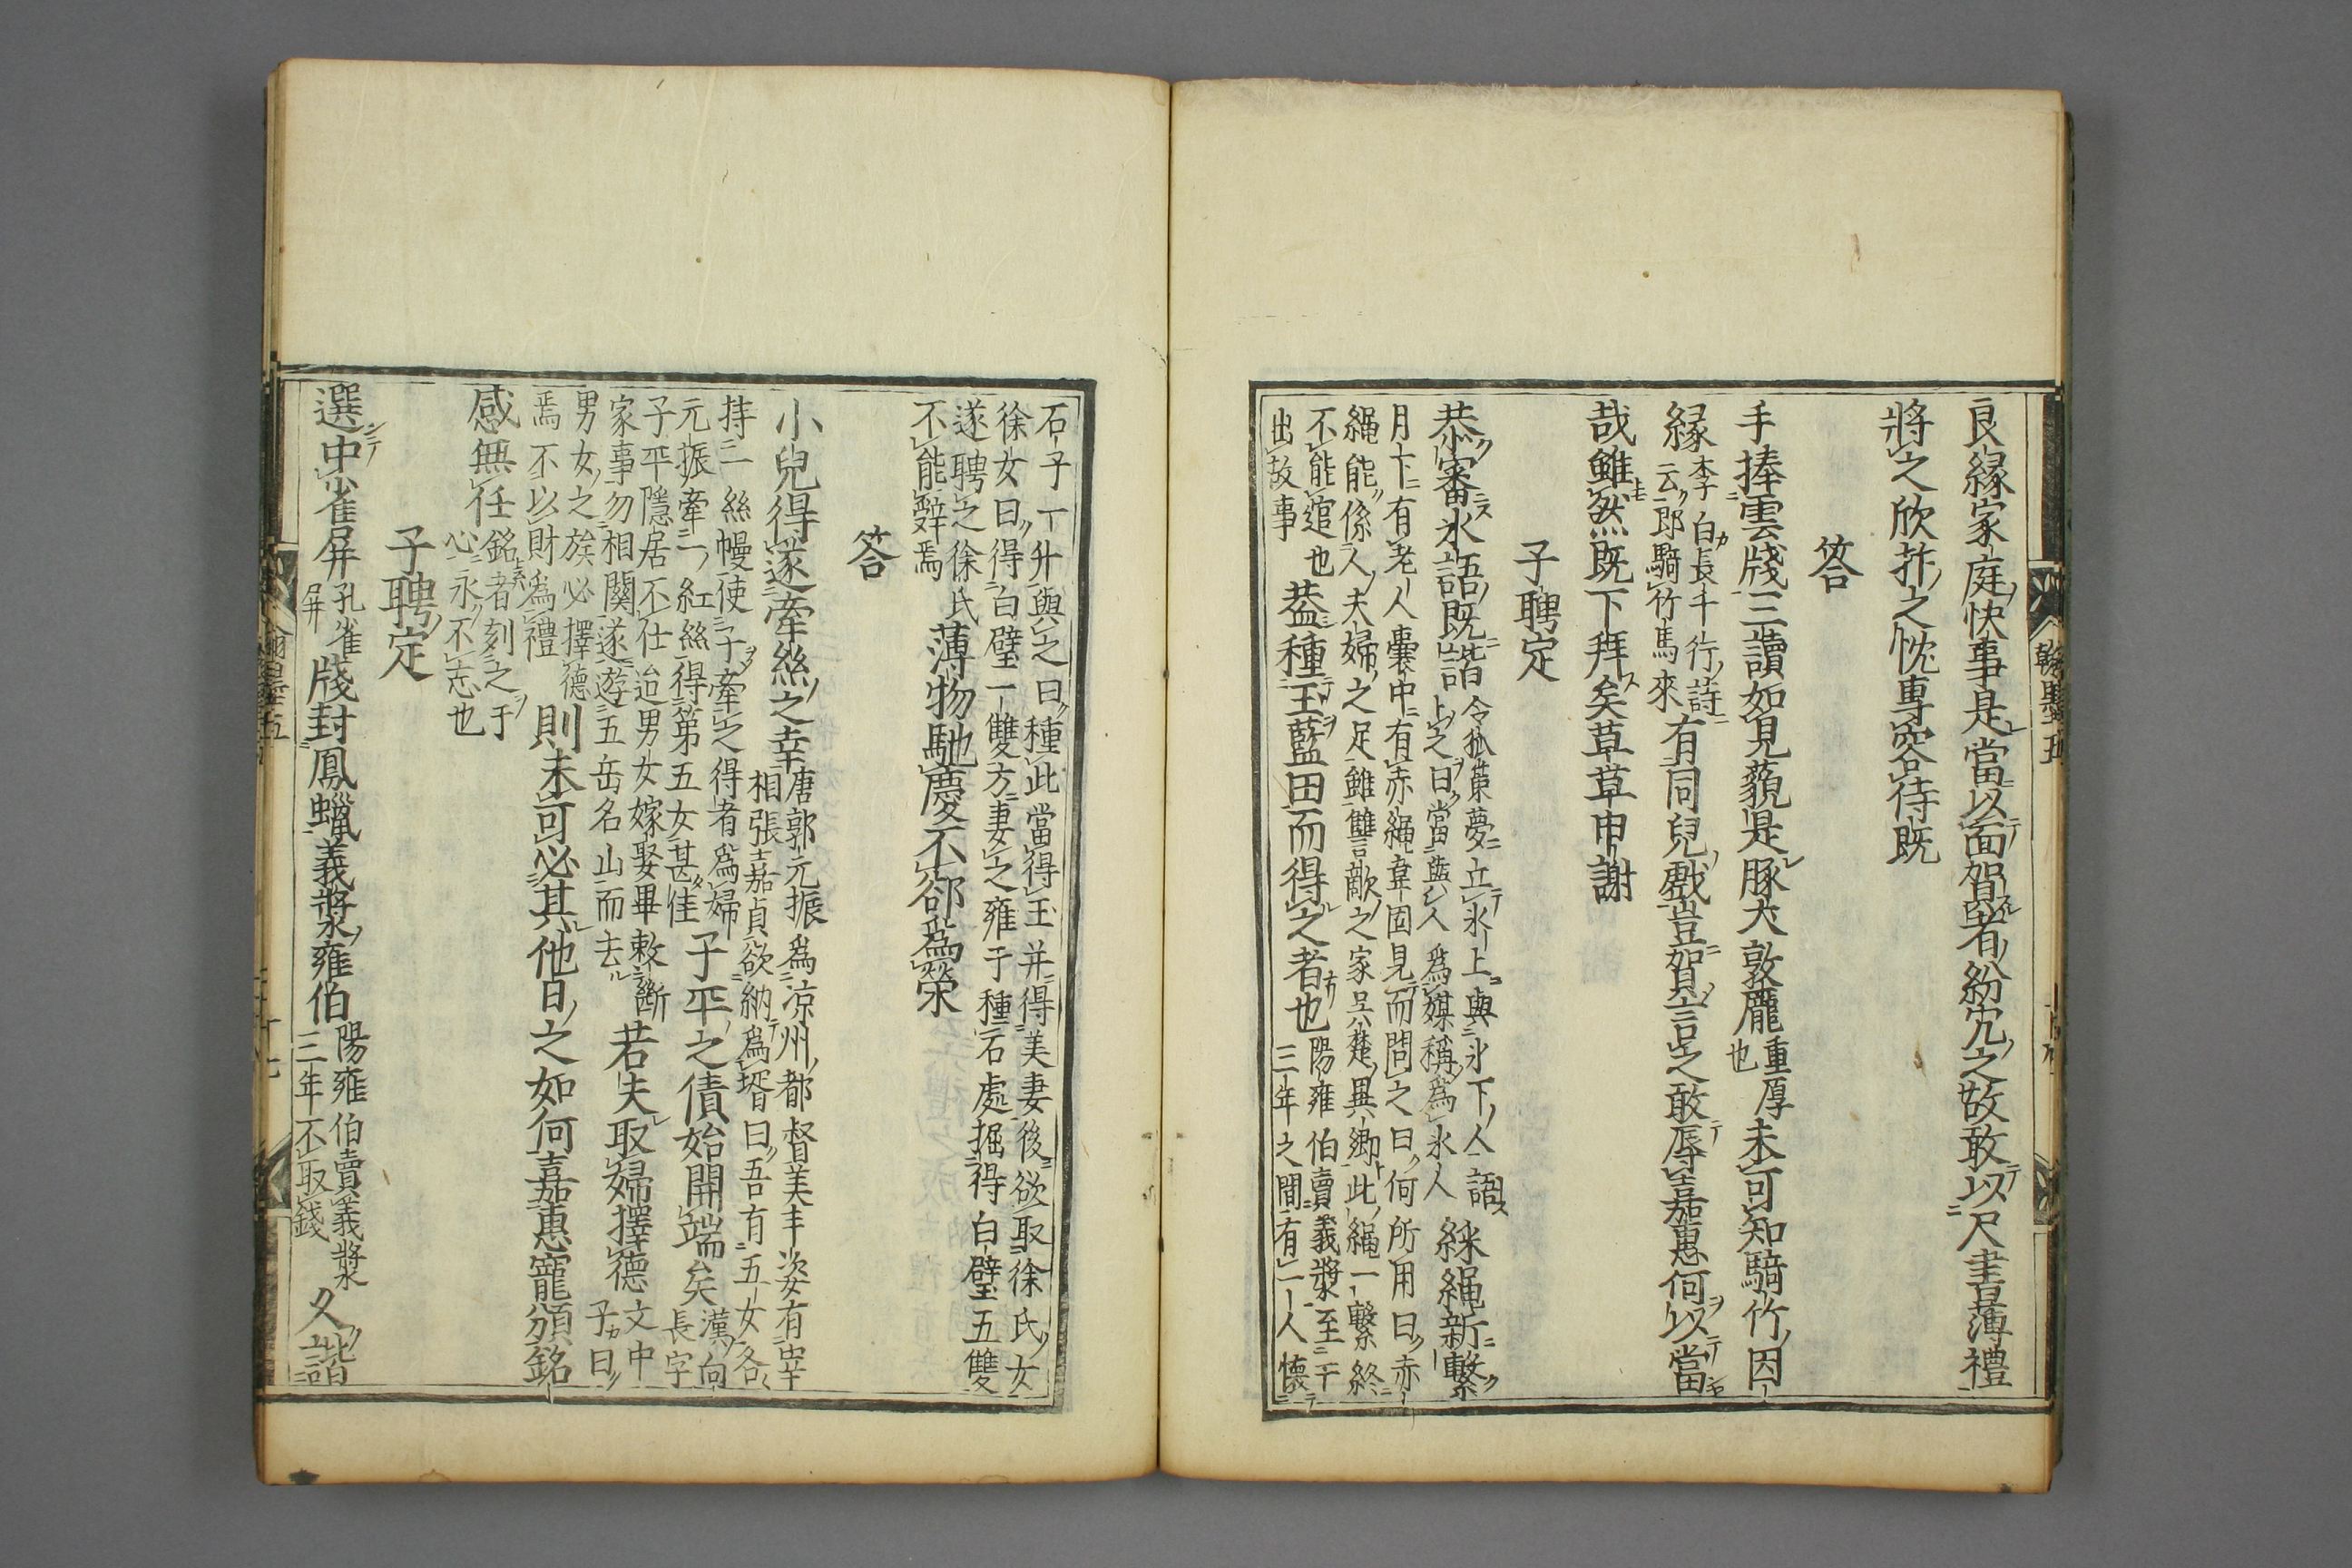 良縁家庭快事是當以面賀者紛冗之故敢以尺書薄禮
將之欣抃之忱專容待既
答
手捧雲牋三讀如見藐是豚犬敦龐重厚也未可知騎竹因
縁李白長干行詩云郎騎竹馬來有同兒戲豈賀言之敢辱嘉惠何以當
哉雖然既下拜矣草草申謝
子聘定
恭審氷語既諧令狐策夢立氷上與氷下人語占之曰當爲人爲媒稱爲氷人綵繩新繫
月下有老人囊中有赤繩韋固見而問之曰何所用曰赤
繩能係人夫婦之足雖讐敵之家呉楚異郷此繩一繫終
不能逭也
出故事
葢種玉藍田而得之者也陽雍伯賣義漿至三年之間有一人懷
石子一升與之曰種此當得玉并得美妻後欲取徐氏女
徐女曰得白璧一雙方妻之雍于種石處掘得白璧五雙
遂聘之徐氏
不能辭焉
薄物馳慶不卻爲榮
答
小兒得遂牽絲之幸唐郭元振爲凉州都督美丰姿有宰相張嘉貞欲納爲壻曰吾有五女各
持一絲幔使子牽之得者爲婦
元振牽一紅絲得第五女甚佳
子平之債始開端矣漢向長字
子平隱居不仕迨男女嫁娶畢敕斷
家事勿相關遂遊五岳名山而去
若夫取婦擇德文中子曰
男女之族必擇德
焉不以財爲禮
則未可必其他日之如何嘉惠寵頒銘
感無任銘者刻之于心永不忘也
子聘定
選中雀屏孔雀屏牋封鳳蠟義漿雍伯陽雍伯賣義漿三年不取錢久諧